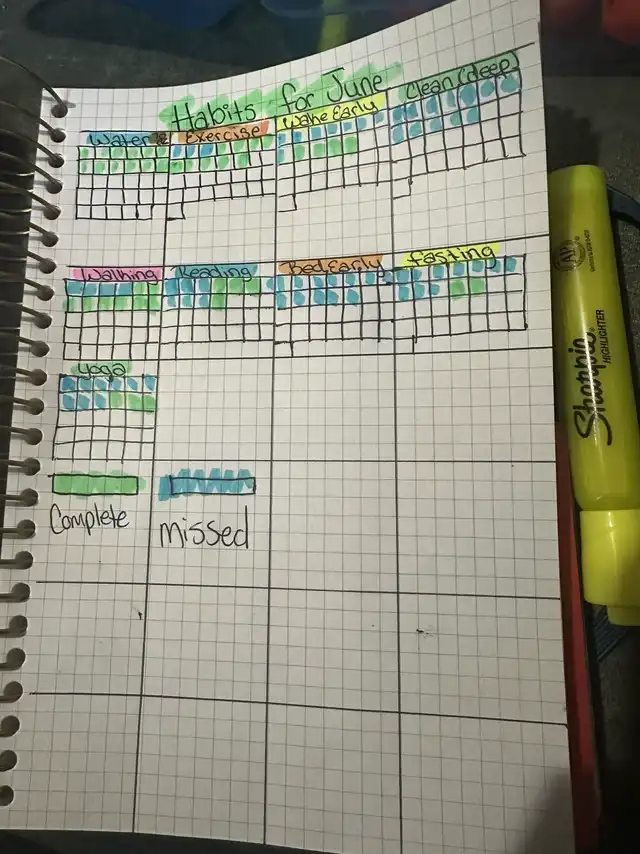 Habits for June
Water
Exercise
Wake Early
Clean/deep
Walking
Reading
Bed Early
fasting
yoga
Complete
missed
Sharpie
HIGHLIGHTER